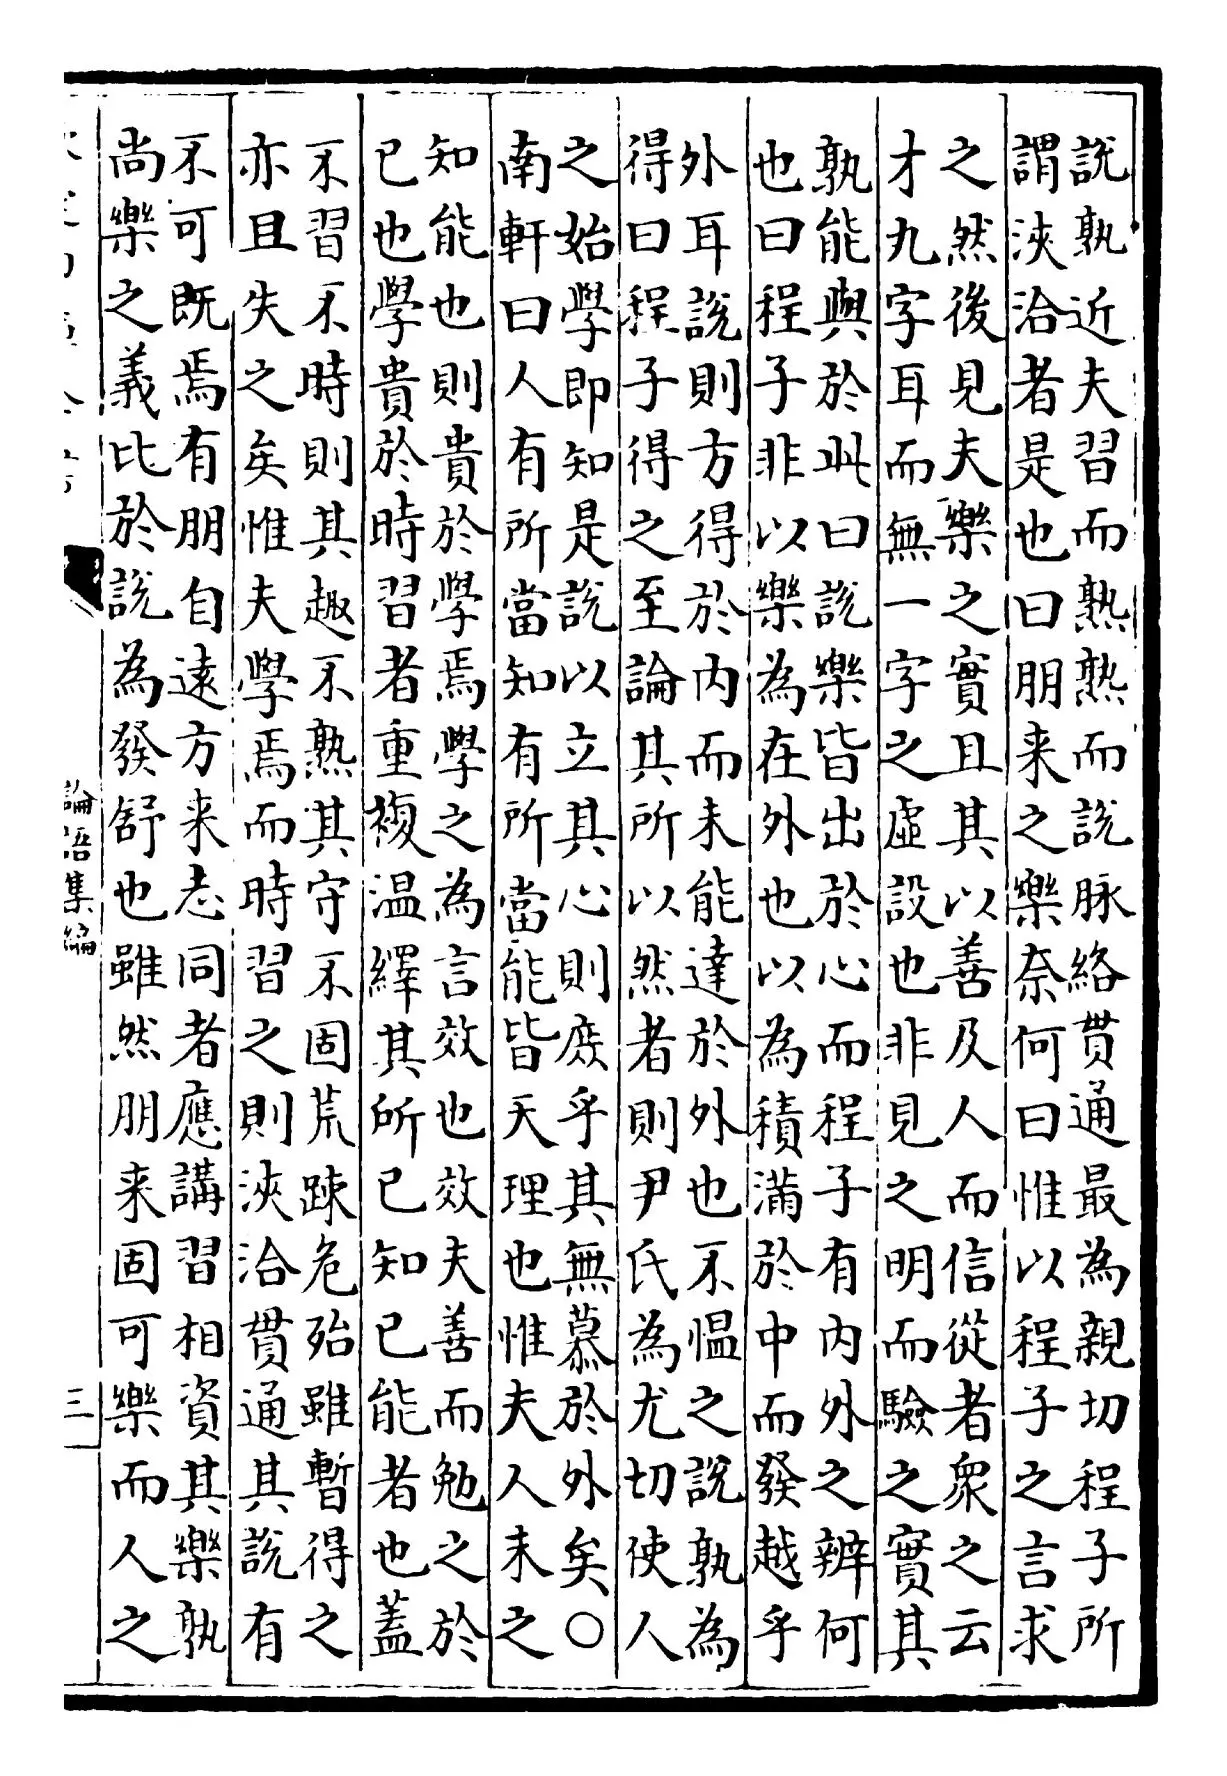 説孰近夫習而熟熟而説脉絡貫通最為親切程子所
謂浹洽者是也曰朋来之樂奈何曰惟以程子之言求
之然後見夫樂之實且其以善及人而信從者衆之云
才九字耳而無一字之虛設也非見之明而驗之實其
孰能與於此曰説樂皆出於心而程子有内外之辨何
也曰程子非以樂為在外也以為積滿於中而發越乎
外耳説則方得於内而未能達於外也不愠之説孰為
得曰程子得之至論其所以然者則尹氏為尤切使人
之始學即知是説以立其心則庶乎其無慕於外矣○
南軒曰人有所當知有所當能皆天理也惟夫人未之
知能也則貴於學焉學之為言效也效夫善而勉之於
已也學貴於時習者重複温繹其所已知已能者也蓋
不習不時則其趣不熟其守不固荒踈危殆雖暫得之
亦且失之矣惟夫學焉而時習之則浹洽貫通其説有
不可既焉有朋自遠方来志同者應講習相資其樂孰
尚樂之義比於説為發舒也雖然朋来固可樂而人之
論語集編
三